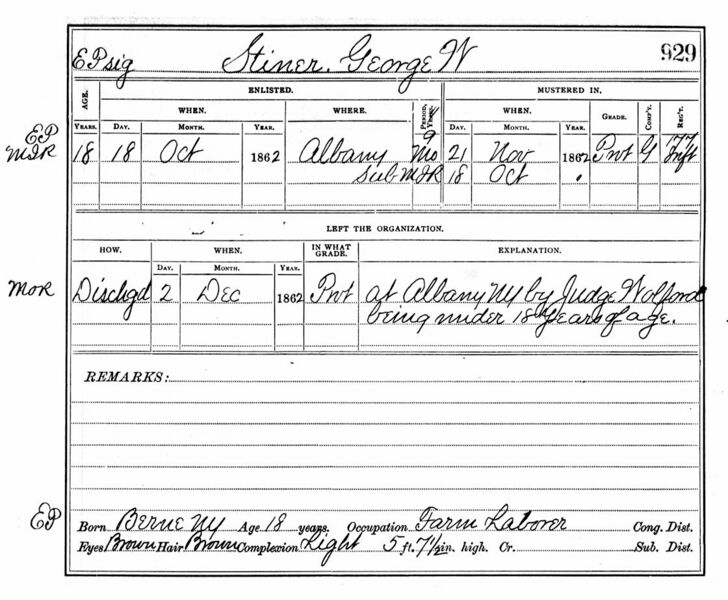 EP sig Stiner, George W 929
AGE. ENLISTED. MUSTERED IN.
WHEN. WHERE. PERIOD, YEARS. WHEN. GRADE. COMP'Y. REG'T.
YEARS. DAY. MONTH. YEAR. DAY. MONTH. YEAR.
EP 9 177
MIR 18 18 Oct 1862 Albany Mo 21 Nov 1862 Pvt G Inft
Sub MIR 18 Oct .
LEFT THE ORGANIZATION.
HOW. WHEN. IN WHAT GRADE. EXPLANATION.
DAY. MONTH. YEAR.
MOR Dischgd 2 Dec 1862 Pvt at Albany NY by Judge Wolford
being under 18 years of age.
REMARKS:
EP Born Berne NY Age 18 years. Occupation Farm Laborer Cong. Dist.
Eyes Brown Hair Brown Complexion Light 5 ft. 7½ in. high. Cr. Sub. Dist.